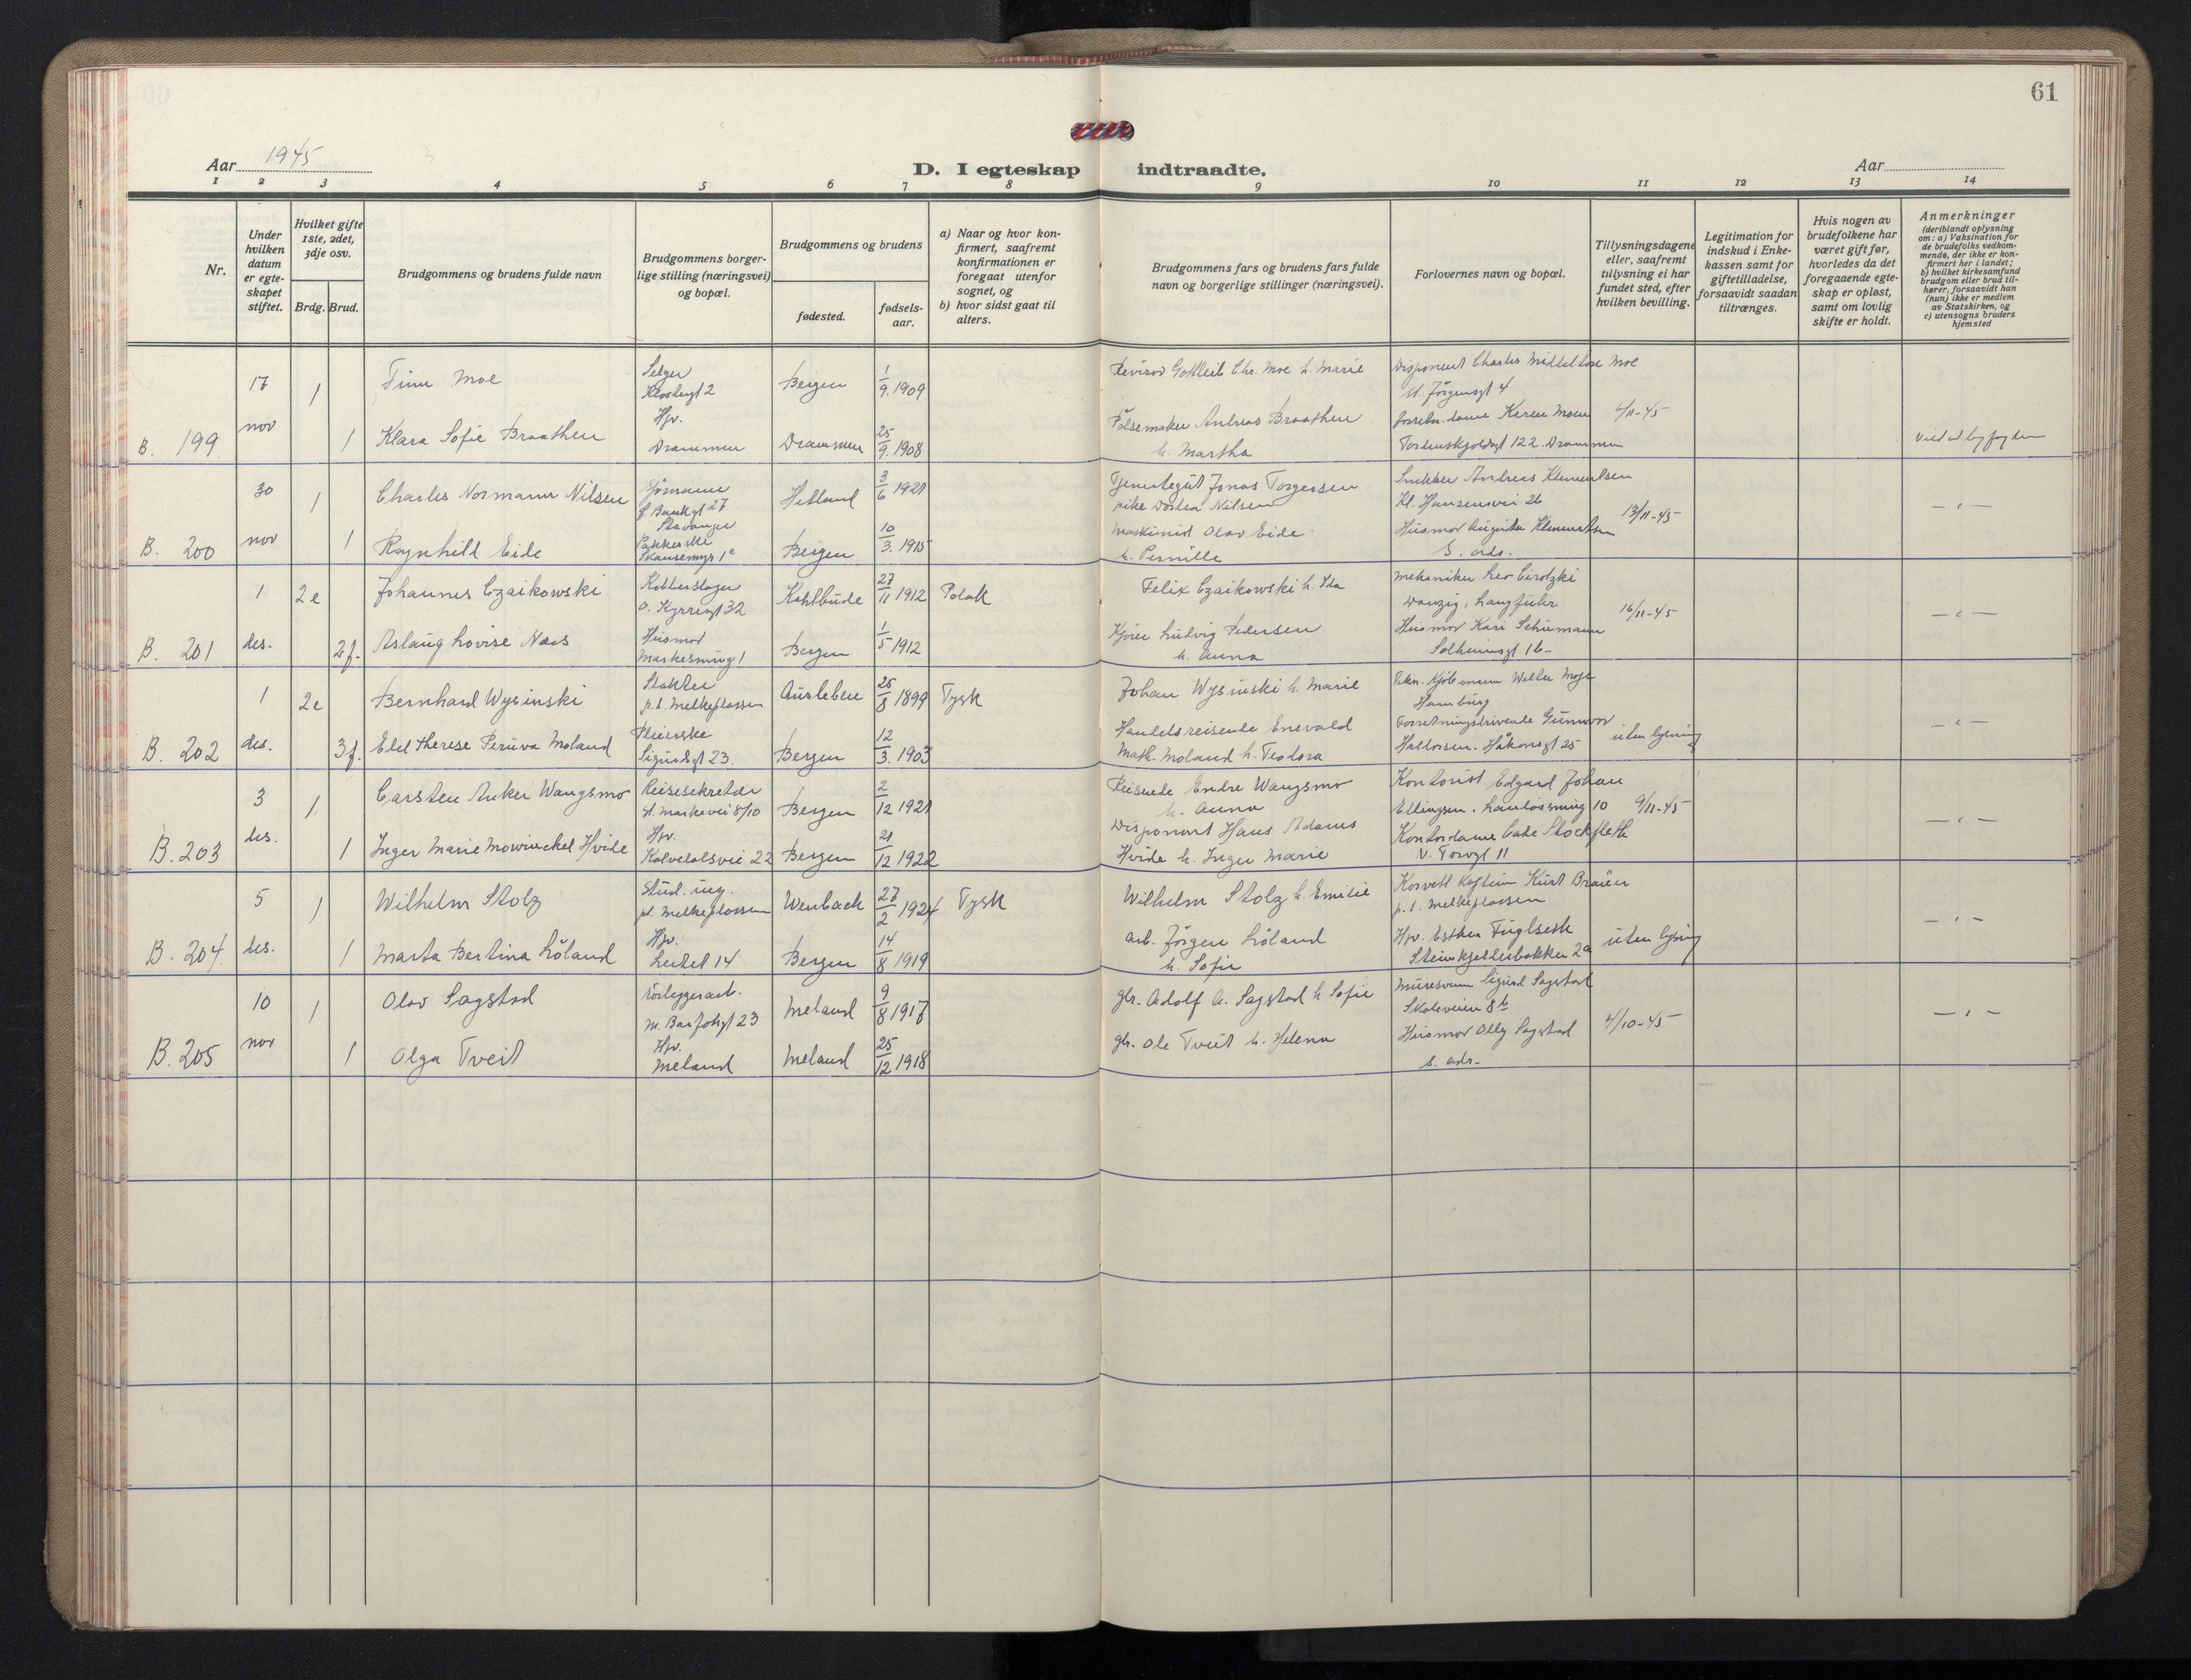 61
Aar 1945
D. I egteskap indtraadte.
Aar
1 2 3 4 5 6 7 8 9 10 11 12 13 14
Nr.
Under hvilken datum er egteskapet stiftet.
Hvilket gifte 1ste, 2det, 3dje osv.
Brdg. Brud.
Brudgommens og brudens fulde navn
Brudgommens borgerlige stilling (næringsvei) og bopæl.
Brudgommens og brudens
fødested.
fødselsaar.
a) Naar og hvor konfirmert, saafremt konfirmationen er foregaat utenfor sognet, og
b) hvor sidst gaat til alters.
Brudgommens fars og brudens fars fulde navn og borgerlige stillinger (næringsvei).
Forlovernes navn og bopæl.
Tillysningsdagene eller, saafremt tillysning ei har fundet sted, efter hvilken bevilling.
Legitimation for indskud i Enkekassen samt for giftetilladelse, forsaavidt saadan tiltrænges.
Hvis nogen av brudefolkene har været gift før, hvorledes da det foregaaende egteskap er opløst, samt om lovlig skifte er holdt.
Anmerkninger
(deriblandt oplysning om: a) Vaksination for de brudefolks vedkommende, der ikke er konfirmert her i landet; b) hvilket kirkesamfund brudgom eller brud tilhører, forsaavidt han (hun) ikke er medlem av Statskirken, og c) utensogns bruders hjemsted
B. 199 17 nov
1 Finn Moe Selger Klostergt 2 Bergen 1/9 1909 Revisor Gottleib Chr. Moe h. Marie Disponent Charles Middelton Moe St. Jörgensgt 4
1 Klara Sofie Braathen Hjv. Drammen Drammen 25/9 1908 Pölsemaker Andreas Braathen h. Martha Forretn. dame Karen Moen Tordenskjoldsgt 122. Drammen 6/11-45
Viet av byfogden
B. 200 30 nov
1 Charles Normann Nilsen Sjömann Bankgt 27 Stavanger Hetland 3/6 1921 Tjenestegut Jonas Torgersen pike Dortea Nilsen Snekker Andreas Klementsen Kl. Hansensvei 26
1 Ragnhild Eide Pakkerske Skansemyr 1e Bergen 10/3 1915 Maskinist Olav Eide h. Pernille Husmor Augusta Klementsen S. adr. 13/11-45
- " -
B. 201 1 des.
2e Johannes Czaikowski Kobberslager O. Kyrresgt 32 Kahlbude 27/11 1912 Polak Felix Czaikowski h. Ida Mekaniker Leo Cirotzki Danzig, Langfuhr
2f. Aslaug Lovise Næs Husmor Markesmug 1 Bergen 1/5 1912 Kjörer Ludvig Pedersen h. Anna Husmor Kari Schumann Solheimsgt 16- 16/11-45
- " -
B. 202 1 des.
2e Bernhard Wysinski Slakter p.t. Melkeplassen Ausleben 25/8 1899 Tysk Johan Wysinski h. Marie Hamburg
3f. Edel Therese Peruva Moland Pleierske Sigurdsgt 23. Bergen 12/3 1903 Handelsreisende Enevald Math. Moland h. Teodora Forretningsdrivende Gunnvor Halvorsen. Håkonsgt 25 uten lysning
- " -
B. 203 3 des.
1 Carsten Anker Wangsmo Reisesekretær St. Markevei 8/10 Bergen 2/12 1921 Reisende Endre Wangsmo h. Anna Kontorist Edgard Johan Ellingsen. Lauløssmug 10
1 Inger Marie Mowinckel Hvide Hjv. Kalvedalsvei 22 Bergen 21/12 1922 Disponent Hans Adams Hvide h. Inger Marie Kontordame Cate Stockfleth V. Torvgt 11 9/11-45
- " -
B. 204 5 des.
1 Wilhelm Stolz Stud. ing. pt. Melkeplassen Wenbach 27/2 1924 Tysk Wilhelm Stolz h. Emilie Korvett Kaptein Kurt Bräuer p.t. Melkeplassen
1 Marta Bertina Löland Hjv. Leitet 14 Bergen 14/8 1919 Arb. Jörgen Löland h. Sofie Hjv. Esther Fuglseth Steinkjellerbakken 2a uten lysning
- " -
B. 205 10 nov
1 Olav Sagstad Rörleggerarb. M. Bastohgt 23 Meland 9/8 1917 gbr. Adolf A. Sagstad h. Sofie Muresvenn Sigurd Sagstad Skoleveien 8b
1 Olga Tveit Hjv. Meland Meland 25/12 1918 gbr. Ole Tveit h. Helena Husmor Olly Sagstad s. adr. 4/10-45
- " -